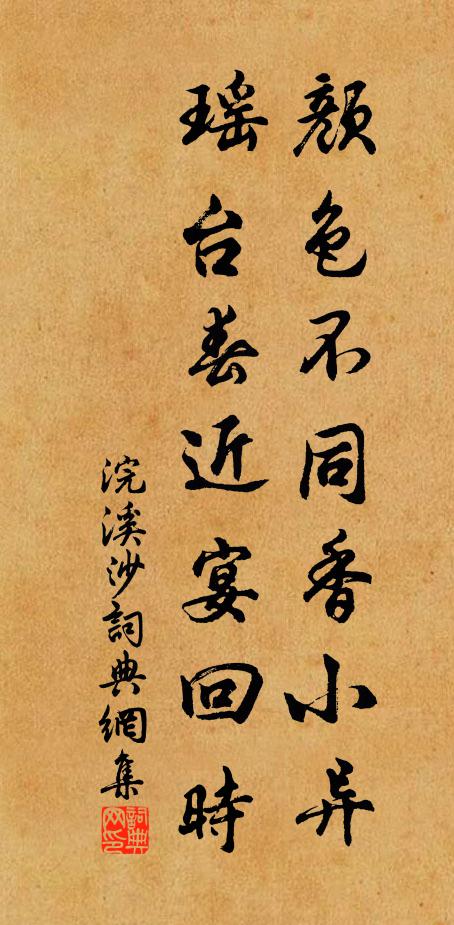 颜色不同香小异
瑶台春近宴回時
浣溪沙詞典網集
詞典网印